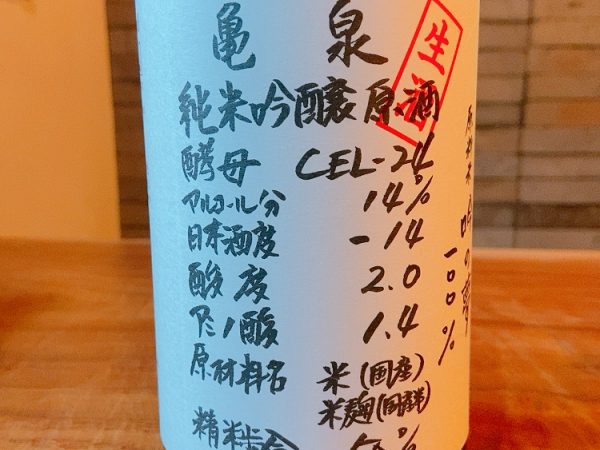 亀泉
生酒
純米吟醸原酒
酵母 CEL-24
アルコール分 14%
日本酒度 -14
酸度 2.0
アミノ酸 1.4
原材料名 米(国産)
米麹(国産米)
精米歩合
一〇〇%